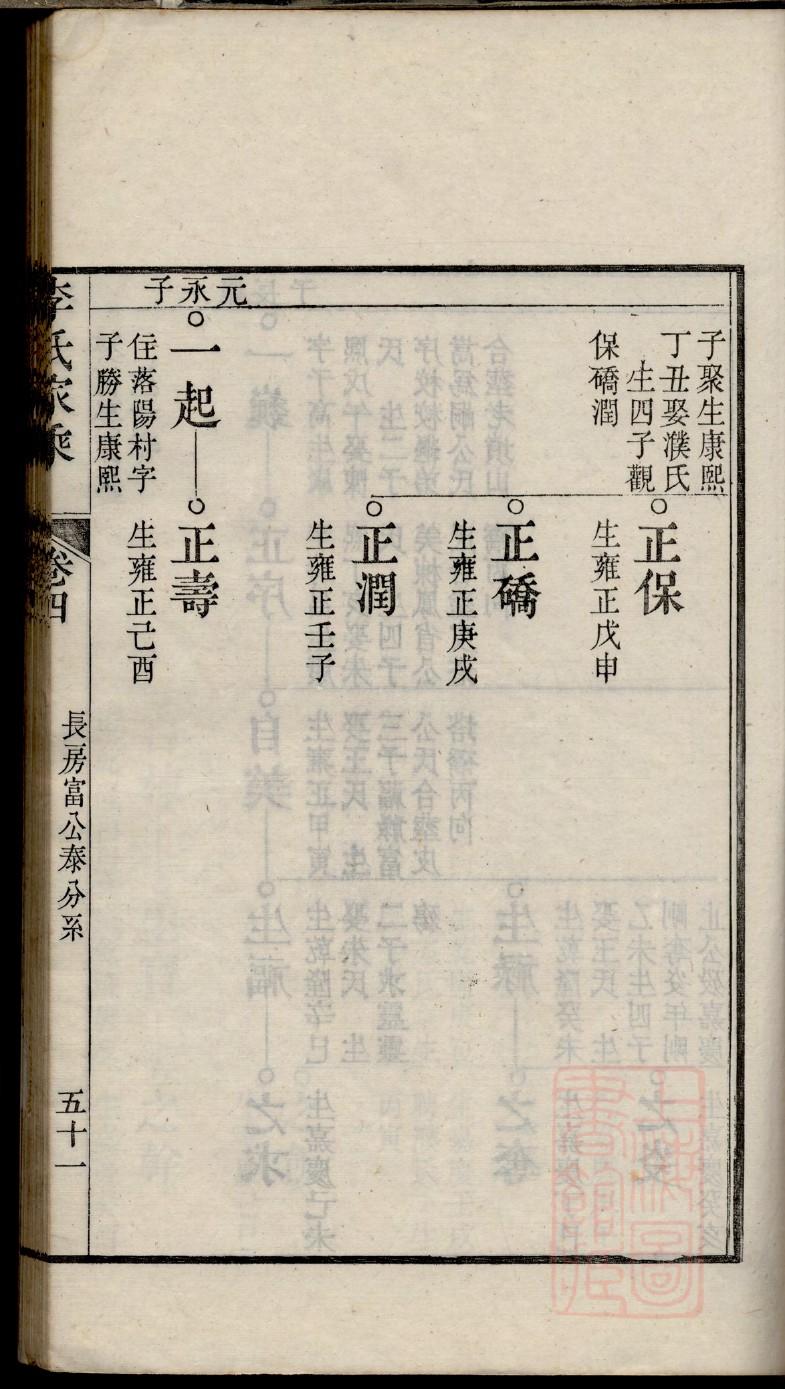 子聚生康熙
丁丑娶濮氏
生四子觀
保礄潤
正保
生雍正戊申
正礄
生雍正庚戌
正潤
生雍正壬子
元永子
一起
住落陽村字
子勝生康熙
正壽
生雍正己酉
李氏家乘
卷四
長房富公泰分系
五十一